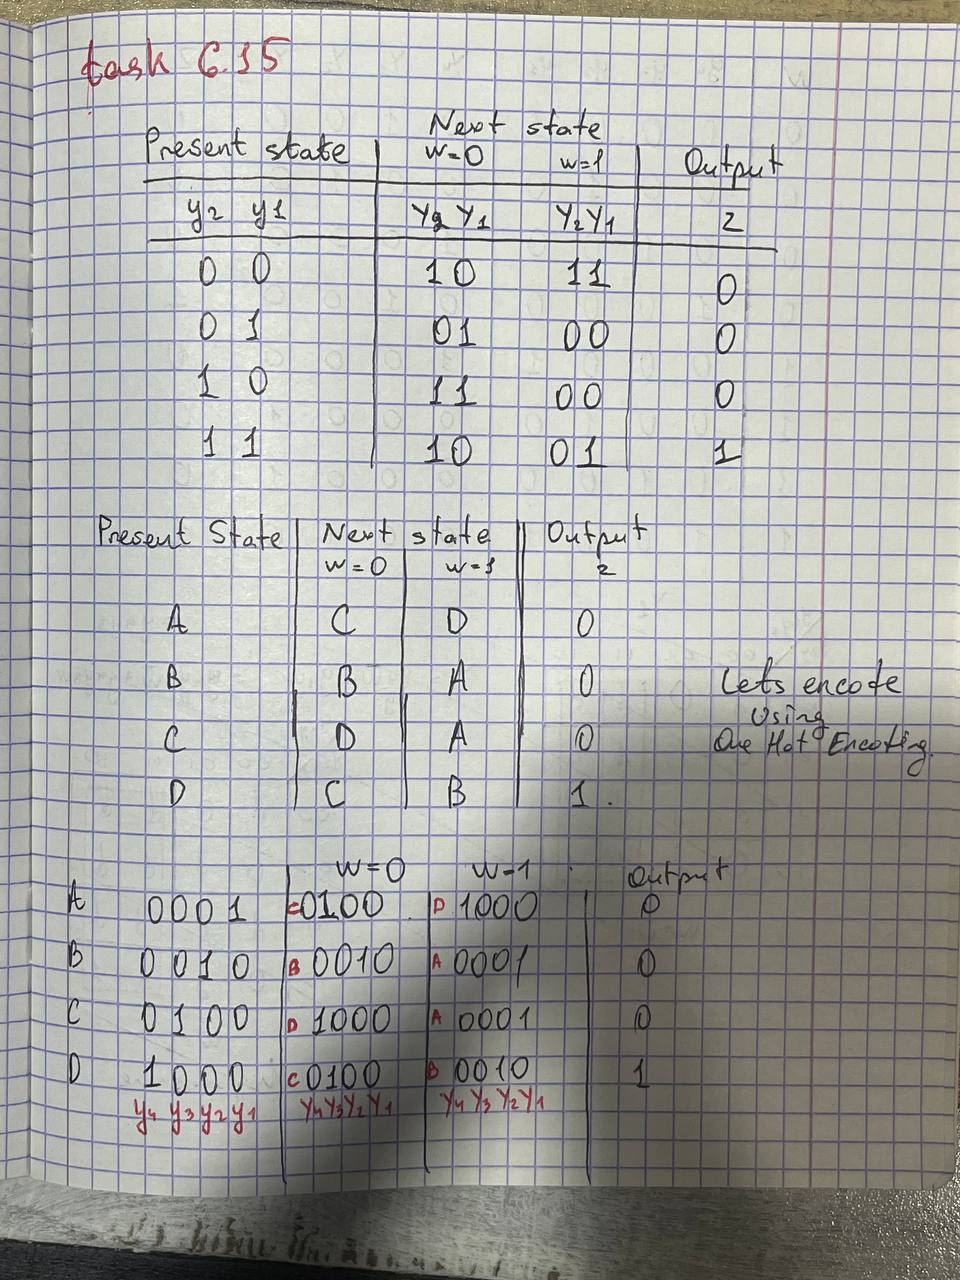 task 6.15
Next state
Present state w=0 w=1 Output
y2 y1 Y2 Y1 Y2Y1 z
0 0 10 11 0
0 1 01 00 0
1 0 11 00 0
1 1 10 01 1
Present State Next state Output
w=0 w=1 z
A C D 0
B B A 0 Lets encode
Using
C D A 0 One Hot Encoting.
D C B 1.
w=0 w=1 Output
A 0001 C 0100 D 1000 0
B 0010 B 0010 A 0001 0
C 0100 D 1000 A 0001 0
D 1000 C 0100 B 0010 1
y4 y3 y2 y1 Y4Y3Y2Y1 Y4Y3Y2Y1